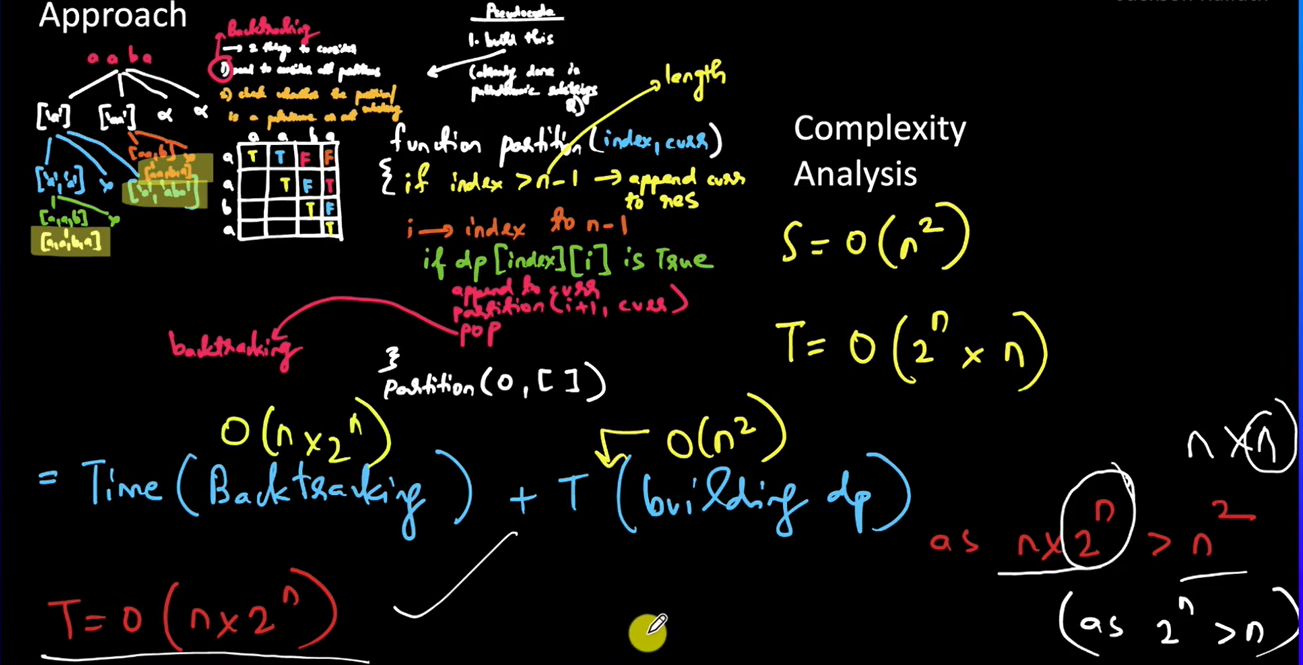 Approach
a a b a
['a'] ['aa'] x x
[aa,b] x
[aa,b,a]
['a','a'] x ['a','aba']
[a,a,b] x
[a,a,b,a]
Backtracking
→ 2 things to consider
1) need to consider all partitions
2) check whether the partition/
is a palindrome or not substring
a a b a
a T T F F
a T F T
b T F
a T
Pseudocode
1. build this
(already done in
palindromic substrings
length
function partition(index, curr)
{ if index > n-1 → append curr
to res
i → index to n-1
if dp[index][i] is True
append to curr
partition(i+1, curr)
pop
backtracking
}
partition(0, [ ])
Complexity
Analysis
S = O(n²)
T = O(2ⁿ × n)
O(n×2ⁿ) O(n²)
= Time(Backtracking) + T(building dp)
n × n
as n×2ⁿ > n²
(as 2ⁿ > n)
T = O(n×2ⁿ)